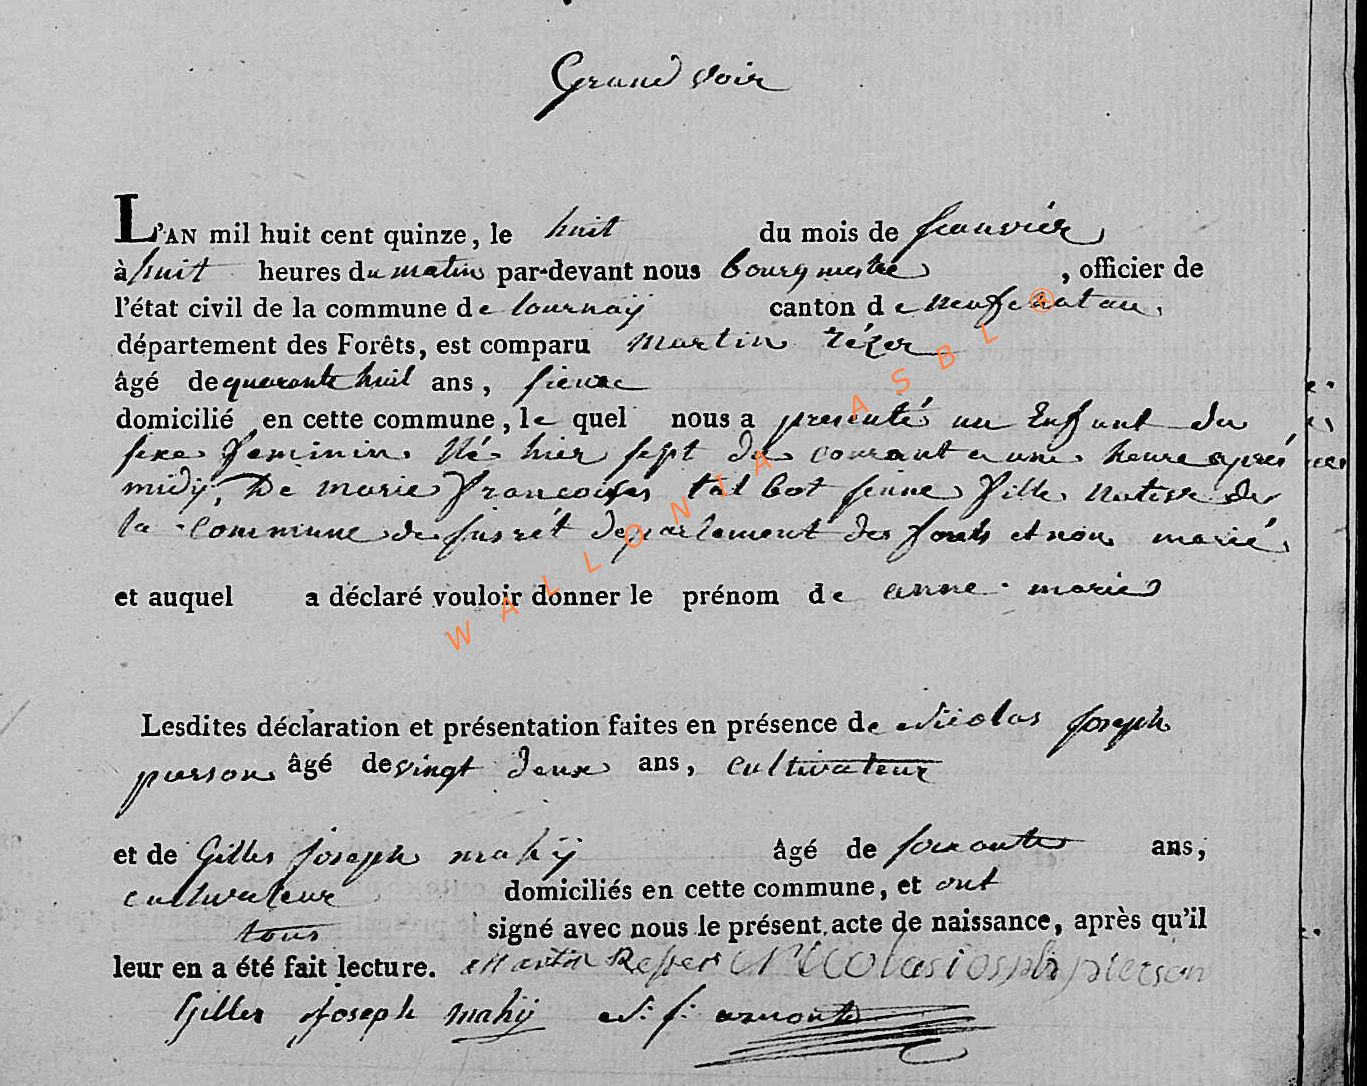 Grand voir
L'AN mil huit cent quinze, le huit du mois de jeanvier
à huit heures du matin par-devant nous bourgmestre, officier de
l'état civil de la commune de tournaÿ canton de neufchatau,
département des Forêts, est comparu martin rézer
âgé de quarante huit ans,
domicilié en cette commune, le quel nous a presenté un Enfant du
sexe feminin. Né hier sept du courant a une heure aprés
midÿ, De marie francoises talbot jeune fille native de
la commune de département des forets et non marié
et auquel a déclaré vouloir donner le prénom de anne marie
Lesdites déclaration et présentation faites en présence de Nicolas joseph
pierson âgé de vingt deux ans, cultivateur
et de Gilles joseph mahÿ âgé de soixante ans,
cultivateur domiciliés en cette commune, et ont
tous signé avec nous le présent acte de naissance, après qu'il
leur en a été fait lecture. Martin Resser Nicolas iosph pierson
Gilles joseph mahÿ N: j:
WALLONIA ASBL ®